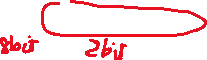 8bit
2bit